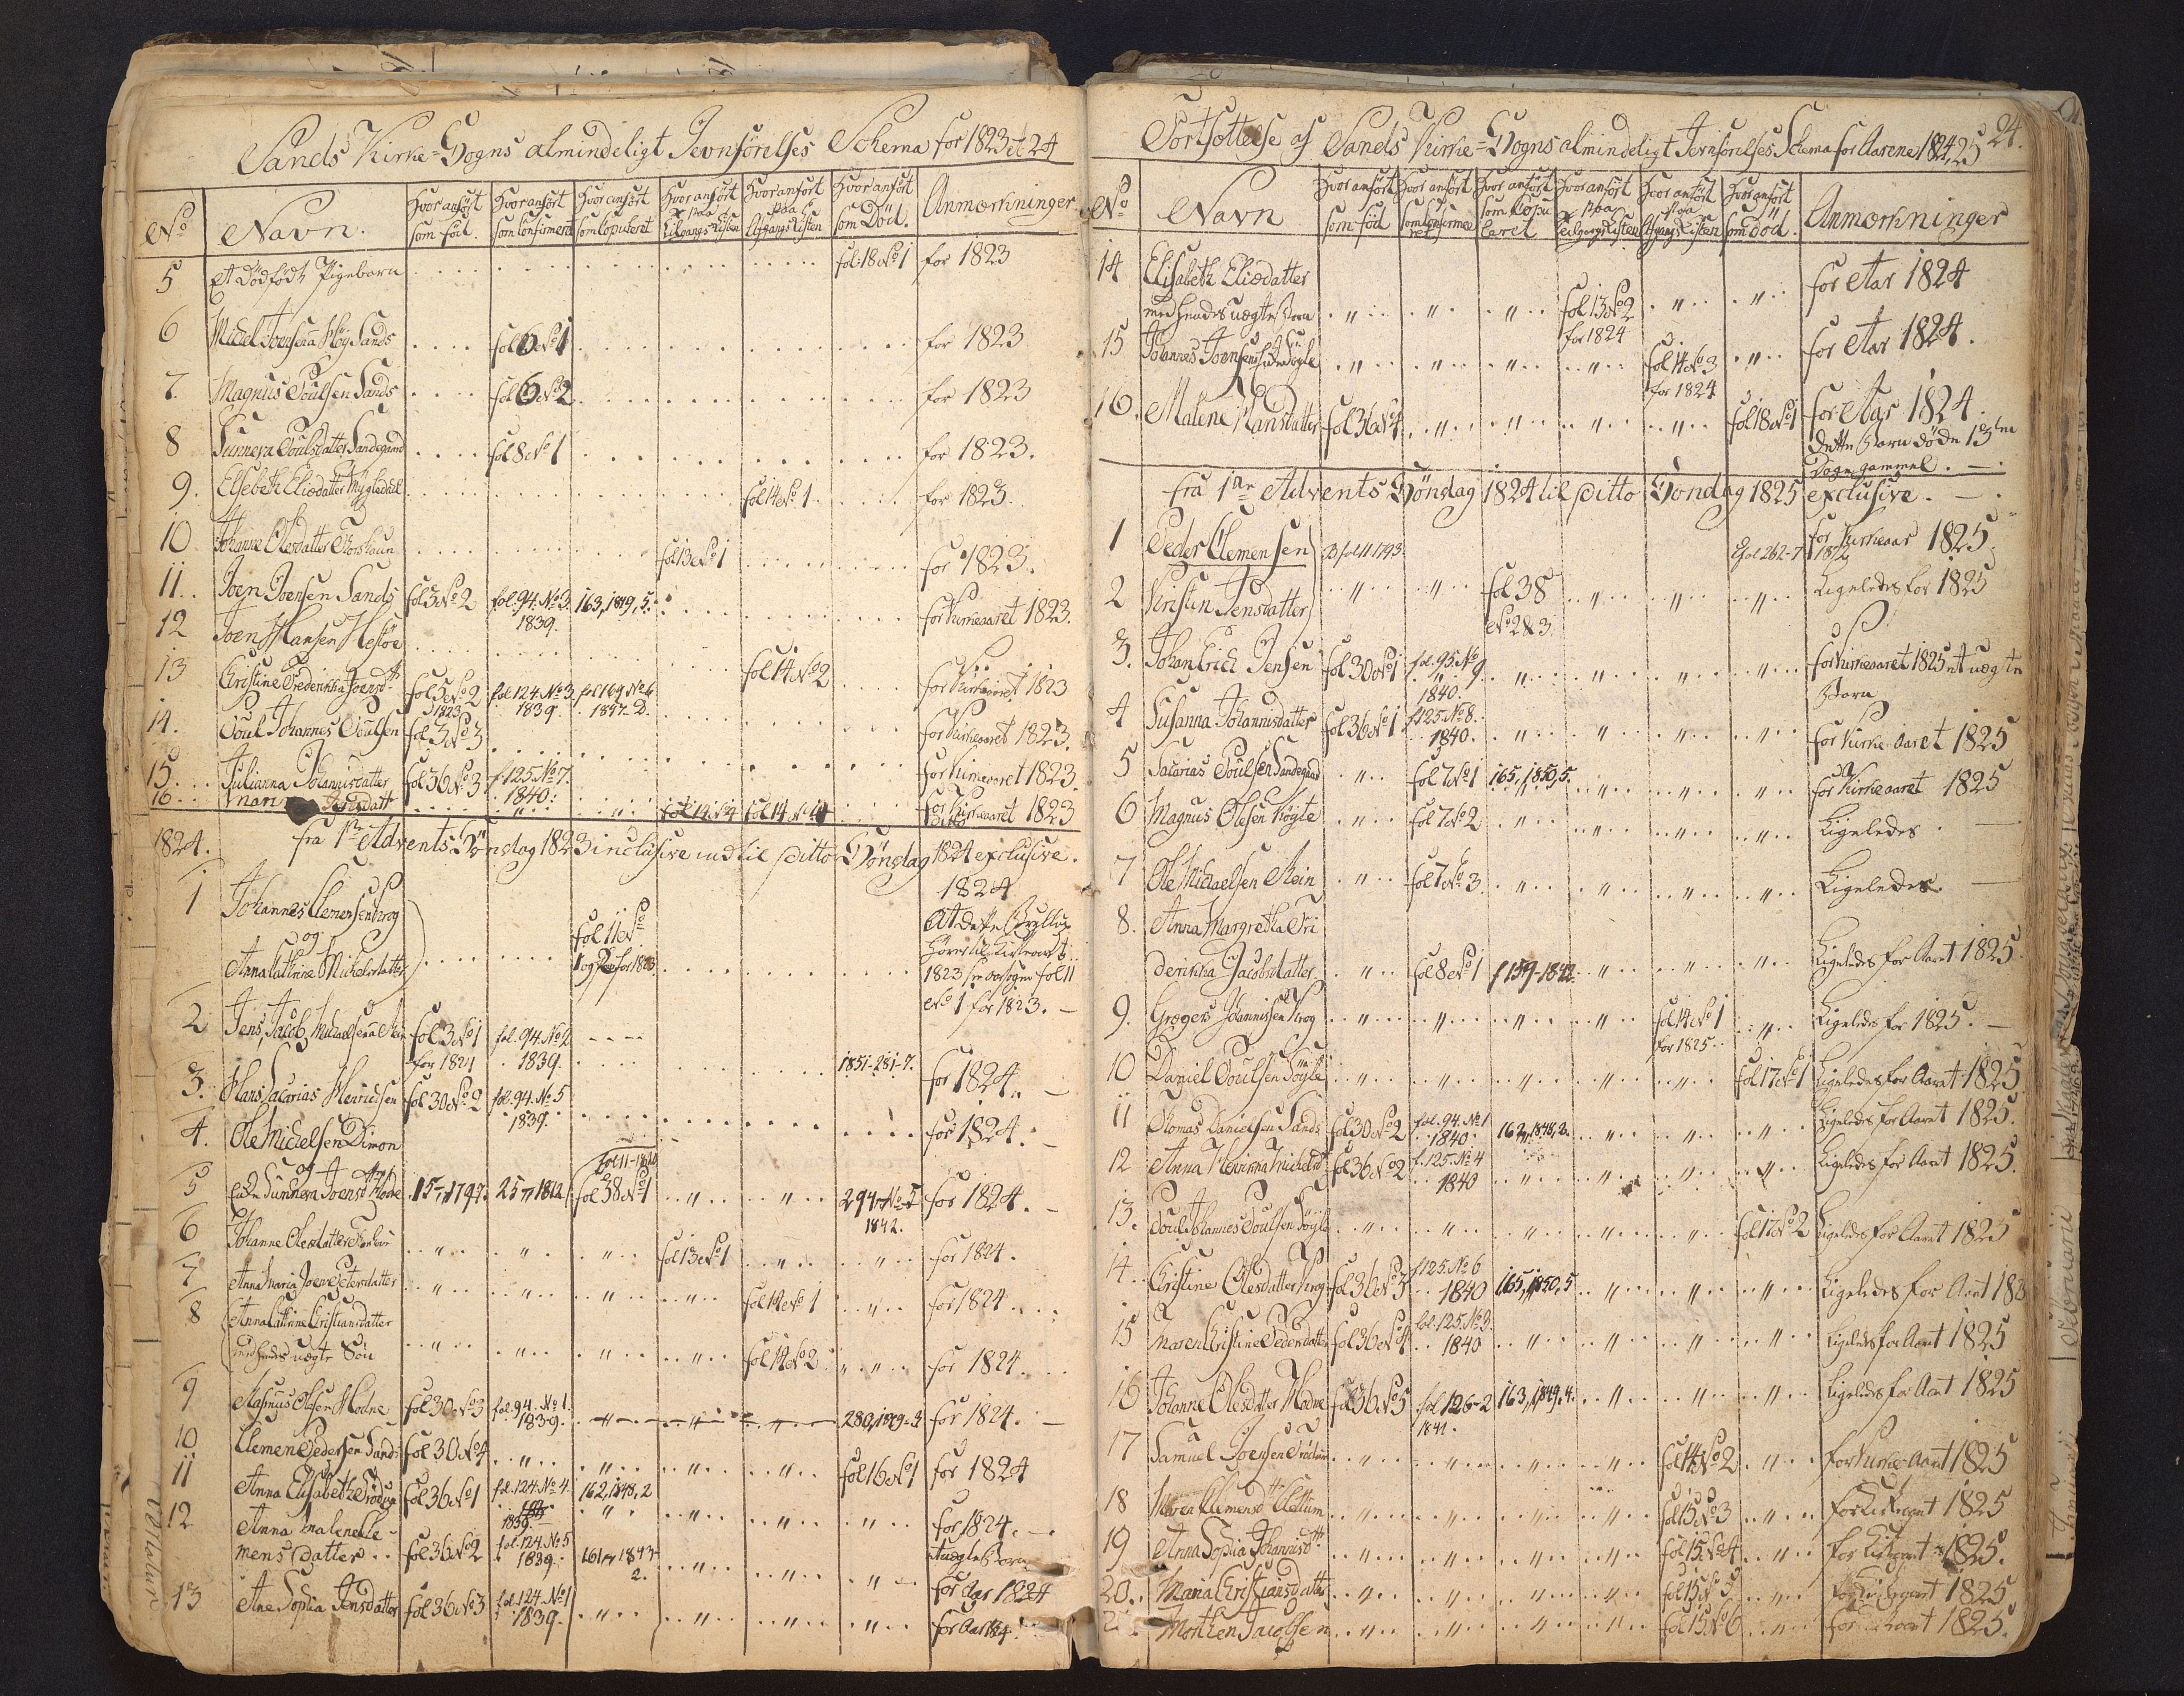 Sands Kirke-Sogns almindeligt Jevnførelses Schema for 1823 et 24
No Navn. Hvor anført som fød. Hvor anført som Confirmeret Hvor anført som Copuleret Hvor anført paa Tilgangs Listen Hvor anført paa Afgangs Listen Hvor anført som Död. Anmærkninger
5 et Dödfödt Pigebarn fol: 18 No 1 for 1823
6 Michel Joensen Sands fol 6 No 1 for 1823
7. Magnus Poulsen Sands fol 6 No 2 for 1823
8 Sunneva Poulsdatter Sandegaard fol 8 No 1 for 1823.
9. Elsebeth Eliædatter fol 14 No 1 for 1823.
10 Johanne Olesdatter Thorshaun fol 13 No 1 for 1823.
11. Joen Joensen Sands fol 3 No 2 fol. 94. No 3. 1839. 163, 1849, 5. for Kirkeaaret 1823.
12 Joen Hansen fol 14 No 2 for Kirkeaaret 1823
13 Christine Frederikka Joensd fol 5 No 2 1823 fol. 124. No 3. 1839. fol 164 No 4 1847 for Kirkeaaret 1823.
14. Poul Johannes Poulsen fol 3 No 3 for Kirkeaaret 1823.
15. Julianna Johannisdatter fol 36 No 3 f. 125. No 7. 1840. for Kirkeaaret 1823
16 fol 14 No 4 for Kirkeaaret 1823
1824. fra 1ste Advents Söndag 1823 inclusive indtil ditto Söndag 1824 exclusive.
1 Johannes Clemensen Krog og Anna Cathrine Michelsdatter fol 11 No 1824 At dette Bryllup 1823 fol 11 No 1 for 1823.
2 Jens Jacob Michaelsen fol 3 No 1 for 1824 fol. 94 No 2 1839. 1851-281-7. for 1824.
3. Hans Zacarias Henrichsen fol 30 No 2 fol. 94. No 5 1839. for 1824.
4. Ole Michelsen Dimon
5 og Enke Sunneva Joensd 15, 1797. 25, 1812 fol 38 No 1 294, No 5 1842. for 1824.
6 Johanne Olesdatter fol 13 No 1 for 1824.
7 Anna Maria Joen Petersdatter fol 14 No 1 for 1824.
8 Anna Cathrine Christiansdatter med hendes uægte Sön fol 14 No 2 for 1824.
9 Rasmus Olesen fol 30 No 3 fol. 94. No 1. 1839. for 1824.
10 Clemen Pedersen Sands fol 30 No 4 fol 16 No 1 for 1824
11 Anna Elisabeth fol 36 No 1 fol. 124. No 4. 1839. 162, 1848, 2 for 1824.
12 Anna Malene Clemensdatter fol 36 No 2 fol. 124. No 5 1839. 161, 1847 2. for Aar 1824
13 Ane Sophia Jensdatter fol 36 No 3 fol. 124. No 1 1839. for Aar 1824.
Fortsættelse af Sands Kirke-Sogns almindeligt Jevnførelses Schema for Aarene 1824, 25 24.
No Navn Hvor anført som född Hvor anført som Confirmeret Hvor anført som Copuleret Hvor anført paa Tilgangs Listen Hvor anført paa Afgangs Listen Hvor anført som död. Anmærkninger
14 Elisabeth Eliædatter med hendes uægte Barn fol 13 No 2 for 1824 for Aar 1824
15 Johannes Joensen fol 14 No 3 for 1824 for Aar 1824.
16. Malene Hansdatter fol 36 No 4 fol 18 No 1 for Aar 1824. dette Barn döde 13 Dage gammel.
fra 1ste Advents Söndag 1824 til ditto Söndag 1825 exclusive.
1 Peder Clemensen fol 11 1793 fol 262-7 1872 for Kirkeaar 1825.
2 Kristin Jensdatter fol 38 No 2 & 3. Ligeledes for 1825
3. Johan Erich Jensen fol 30 No 1 fol. 95. No 9. 1840. for Kirkeaaret 1825 et uægte Barn
4 Susanna Johannisdatter fol 36 No 1 f 125. No 8. 1840. for Kirke-Aaret 1825
5 Sacarias Poulsen Sandegaard fol 7 No 1 165, 1850, 5. for Kirkeaaret 1825
6 Magnus Olesen fol 7 No 2 Ligeledes
7 Ole Michaelsen fol 7 No 3. Ligeledes.
8. Anna Margretha Friderikka Jacobsdatter fol 8 No 1 f 159-1842 Ligeledes for Aaret 1825.
9. Gregers Johannissen Krog fol 14 No 1 for 1825 Ligeledes for 1825.
10 Daniel Poulsen fol 17 No 1 Ligeledes for Aaret 1825
11 Thomas Danielsen Sands fol 30 No 2 fol. 94. No 1 1840. 162, 1848, 2. Ligeledes for Aaret 1825.
12 Anna Henrikka Michelsd fol 36 No 2 f. 125. No 4 1840 Ligeledes for Aaret 1825.
13. Poul Johannes Poulsen fol 17 No 2 Ligeledes for Aaret 1825
14 Christine Olesdatter Krog fol 36 No 3 f 125. No 6 1840 165, 1850, 5 Ligeledes for Aaret 182
15 Maren Christine Pedersdatter fol 36 No 4 fol. 125. No 3. 1840 Ligeledes for Aaret 1825
16 Johanne Olesdatter fol 36 No 5 fol 126-2 1841. 163, 1849. 4. Ligeledes for Aaret 1825
17 Samuel Joensen fol 14 No 2 for Kirke-Aaret 1825
18 Clemensd fol 15 No 3 for Kirkeaaret 1825
19 Anna Sophia Johannisd fol 15 No 4 for Kirkeaaret 1825.
20. Maria Christiansdatter fol 15 No 5 for Kirkeaaret 1825
Morthen Jacobsen fol 15 No 6 for Kirkeaaret 1825.